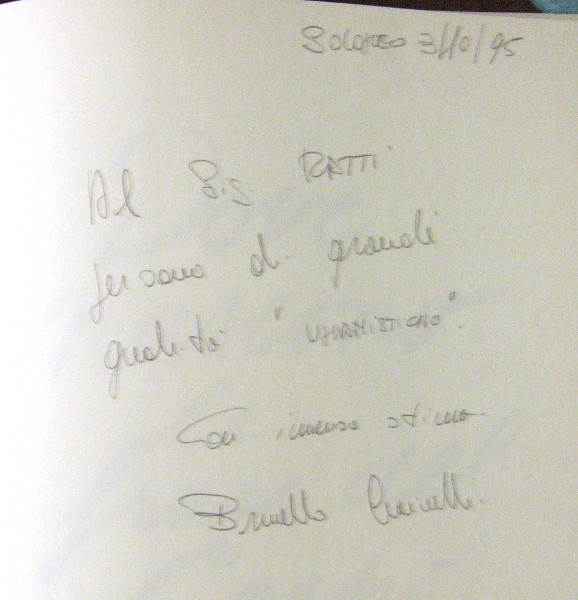 Solomeo 3/10/95
Al Sig RATTI
persona di grandi
qualità "UMANISTICHE".
Con immensa stima
Brunello Cucinelli.